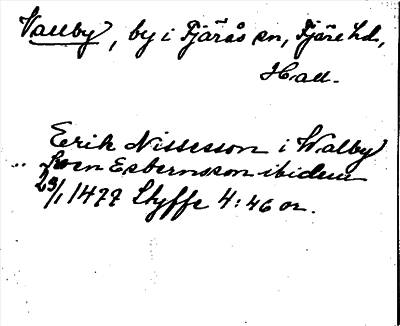 Vallby, by i Fjärås sn, Fjäre hd,
Hall.
Erik Nissesson i Walby
" Swen Esbernsson ibidem
29/1 1477 Styffe 4:46 or.